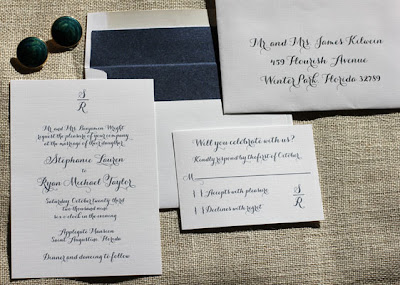 S
R
Mr and Mrs. Benjamin Wright
request the pleasure of your company
at the marriage of their daughter
Stephanie Lauren
to
Ryan Michael Taylor
Saturday October twenty third
two thousand nine
o'clock in the evening
Museum
Saint Augustine Florida
Dinner and dancing to follow
Mr and Mrs. James Kilwein
459 Flourish Avenue
Winter Park, Florida 32789
Will you celebrate with us?
Kindly respond by the first of October
M
Accepts with pleasure
Declines with regret
S
R